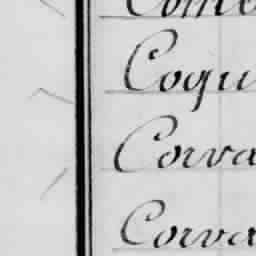 Coqu
Corva
Corva